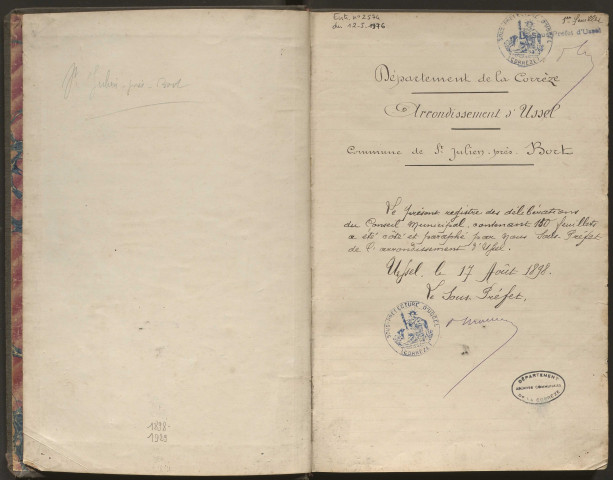 St Julien-près-Bort
1898-
1929
Ent. n° 2536
du 12.5.1976
1er feuillet
SOUS-PRÉFECTURE D'USSEL
(CORRÈZE)
Sous-Préfet d'Ussel
Département de la Corrèze
Arrondissement d'Ussel
Commune de St Julien-près-Bort
Le présent registre des délibérations
du Conseil Municipal, contenant 160 feuillets
a été coté et paraphé par nous Sous-Préfet
de l'arrondissement d'Ussel.
Ussel, le 17 Août 1898.
Le Sous-Préfet,
SOUS-PRÉFECTURE D'USSEL
(CORRÈZE)
DÉPARTEMENT
ARCHIVES COMMUNALES
DE LA CORRÈZE